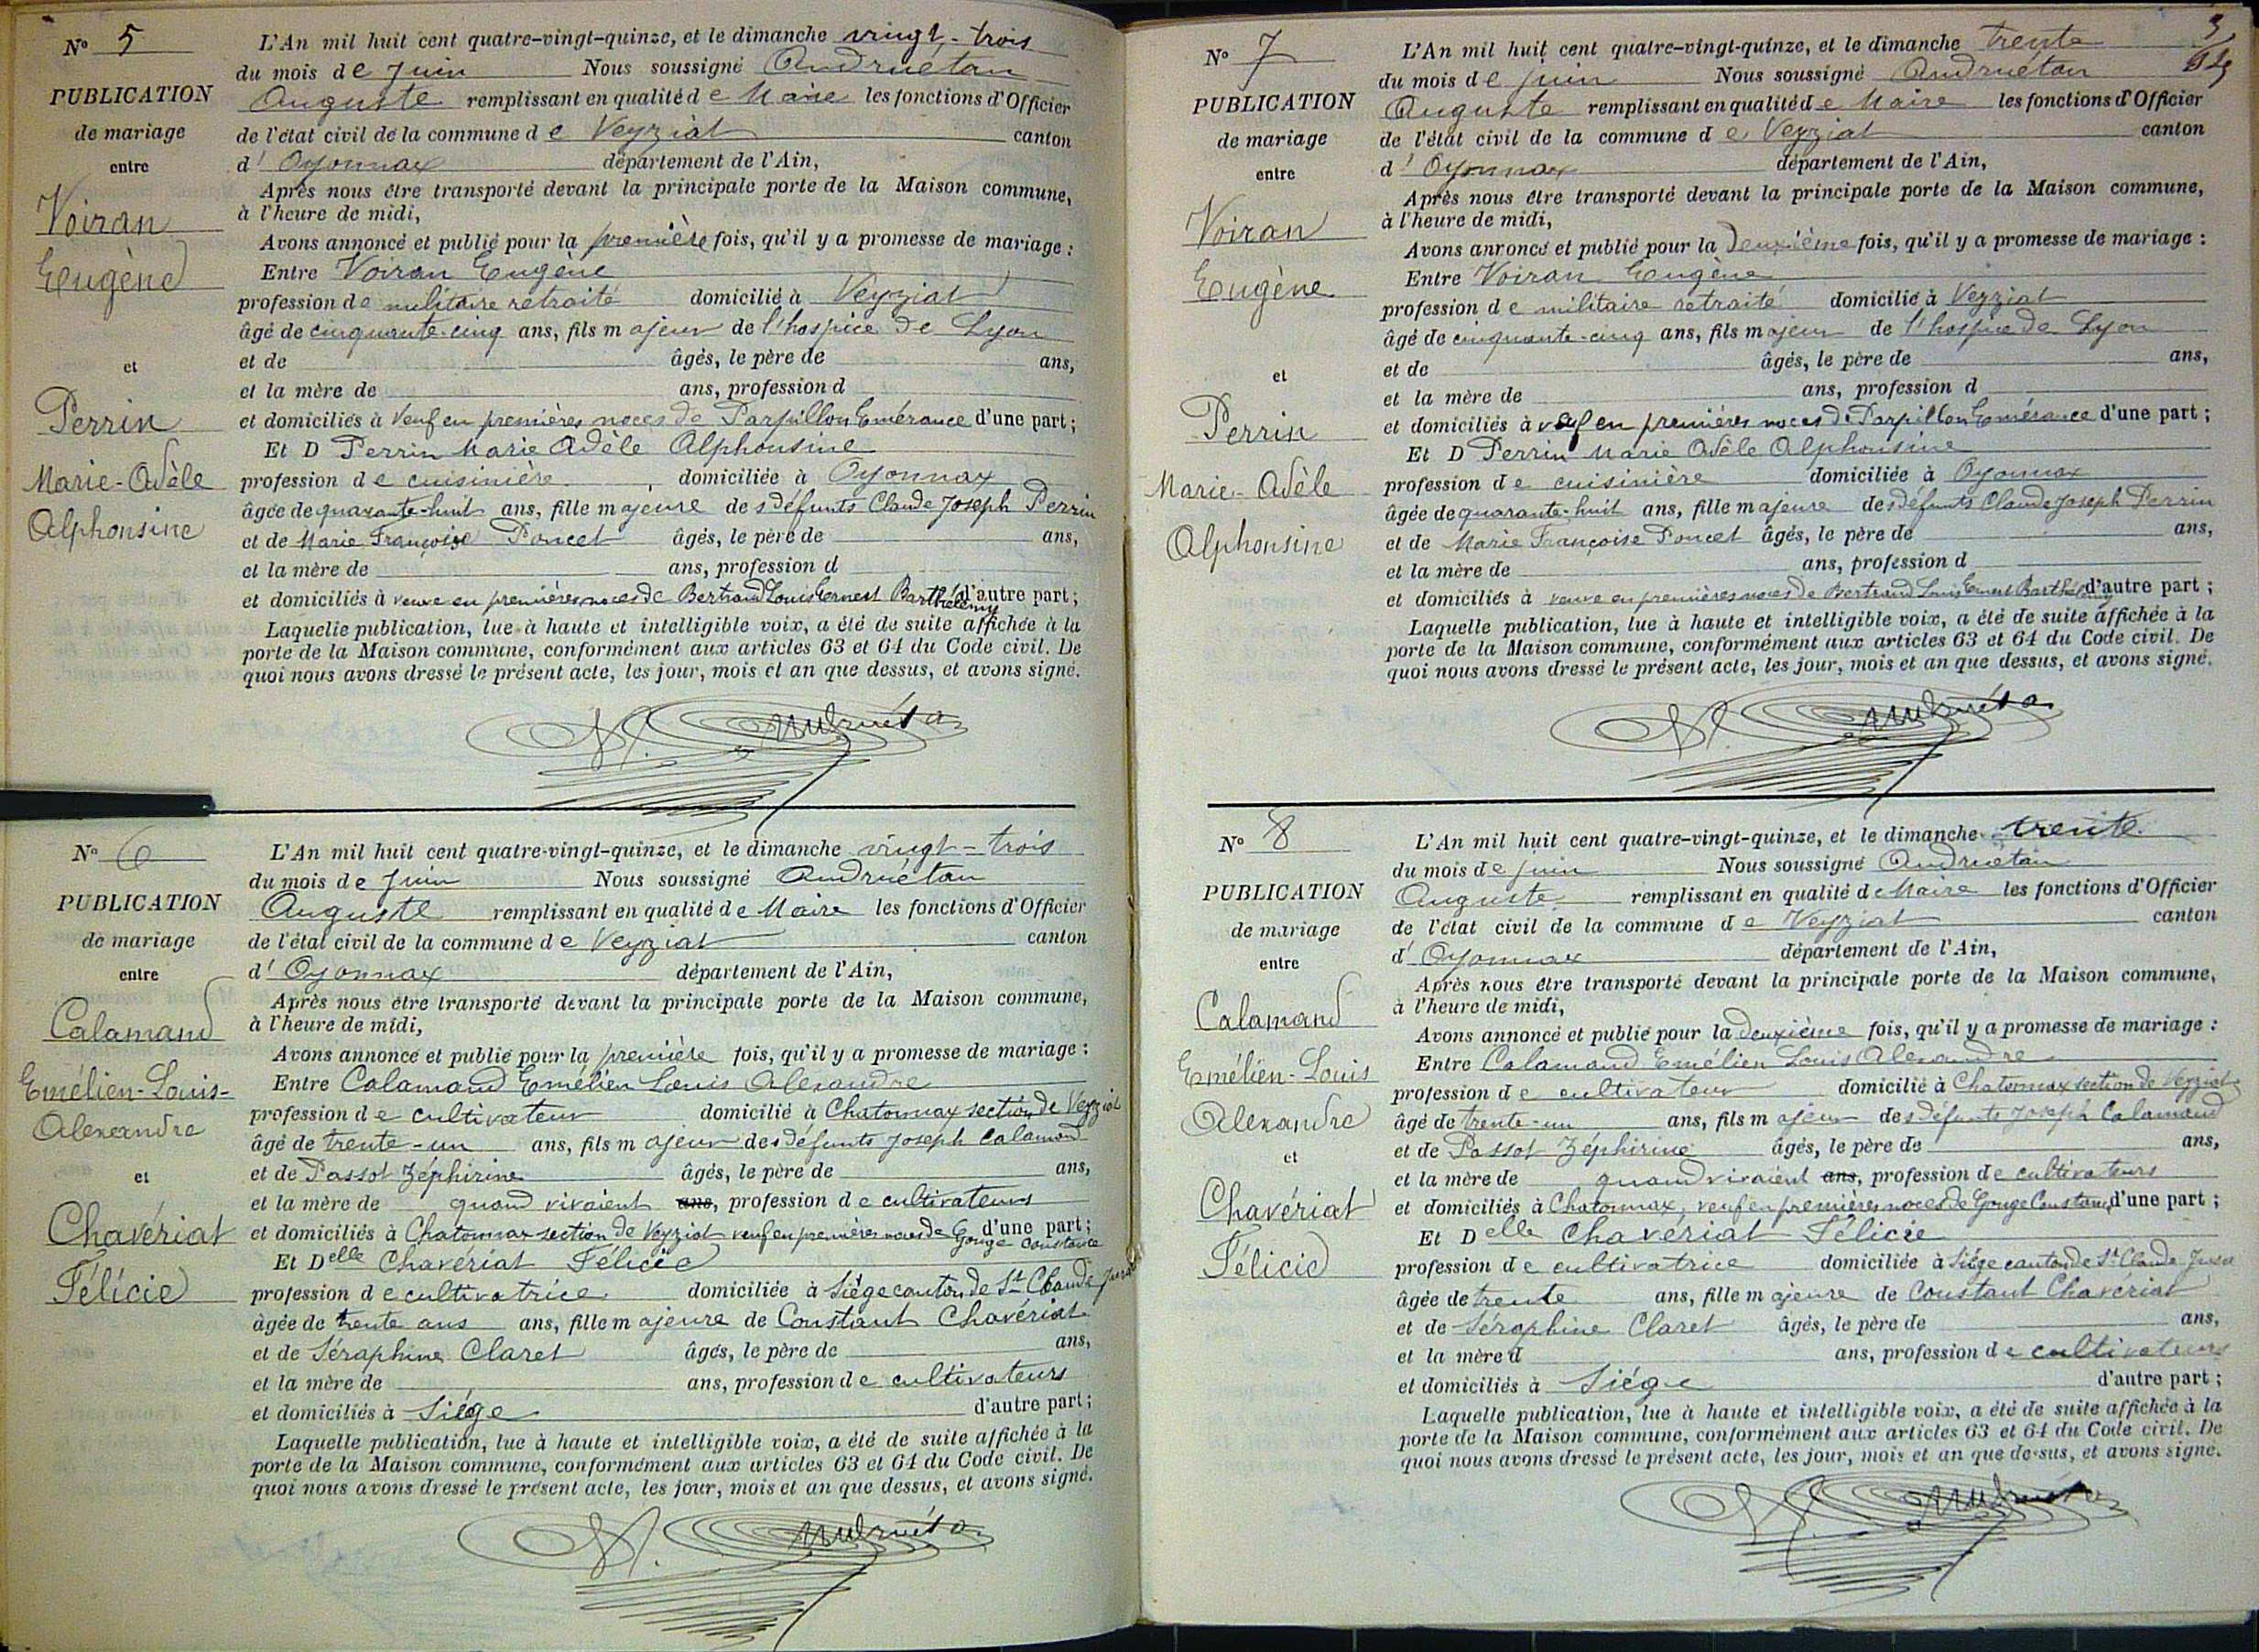 N° 5
PUBLICATION
de mariage
entre
Voiran
Eugène
et
Perrin
Marie-Adèle
Alphonsine
L'An mil huit cent quatre-vingt-quinze, et le dimanche vingt-trois
du mois de Juin Nous soussigné Andruétan
Auguste remplissant en qualité de Maire les fonctions d'Officier
de l'état civil de la commune de Veyziat canton
d'Oyonnax département de l'Ain,
Après nous être transporté devant la principale porte de la Maison commune,
à l'heure de midi,
Avons annoncé et publié pour la première fois, qu'il y a promesse de mariage :
Entre Voiran Eugène
profession de militaire retraité domicilié à Veyziat
âgé de cinquante-cinq ans, fils majeur de l'hospice de Lyon
et de âgés, le père de ans,
et la mère de ans, profession d
et domiciliés à veuf en premières noces de Parpillon Emérance d'une part ;
Et D Perrin Marie Adèle Alphonsine
profession de cuisinière, domiciliée à Oyonnax
âgée de quarante-huit ans, fille majeure des défunts Claude Joseph Perrin
et de Marie Françoise Poncet âgés, le père de ans,
et la mère de ans, profession d
et domiciliés à veuve en premières noces de Bertrand Louis Ernest Barthélemy d'autre part ;
Laquelle publication, lue à haute et intelligible voix, a été de suite affichée à la
porte de la Maison commune, conformément aux articles 63 et 64 du Code civil. De
quoi nous avons dressé le présent acte, les jour, mois et an que dessus, et avons signé.
N° 6
PUBLICATION
de mariage
entre
Calamand
Emélien-Louis-
Alexandre
et
Chavériat
Félicie
L'An mil huit cent quatre-vingt-quinze, et le dimanche vingt-trois
du mois de Juin Nous soussigné Andruétan
Auguste remplissant en qualité de Maire les fonctions d'Officier
de l'état civil de la commune de Veyziat canton
d'Oyonnax département de l'Ain,
Après nous être transporté devant la principale porte de la Maison commune,
à l'heure de midi,
Avons annoncé et publié pour la première fois, qu'il y a promesse de mariage :
Entre Calamand Emélien Louis Alexandre
profession de cultivateur domicilié à Chatonnax section de Veyziat
âgé de trente-un ans, fils majeur des défunts Joseph Calamand
et de Passot Zéphirine âgés, le père de ans,
et la mère de quand vivaient ans, profession de cultivateurs
et domiciliés à Chatonnax section de Veyziat veuf en premières noces de Gouge Constance d'une part ;
Et Delle Chavériat Félicie
profession de cultivatrice domiciliée à Siége canton de St Claude Jura
âgée de trente ans ans, fille majeure de Constant Chavériat
et de Séraphine Claret âgés, le père de ans,
et la mère de ans, profession de cultivateurs
et domiciliés à Siége d'autre part ;
Laquelle publication, lue à haute et intelligible voix, a été de suite affichée à la
porte de la Maison commune, conformément aux articles 63 et 64 du Code civil. De
quoi nous avons dressé le présent acte, les jour, mois et an que dessus, et avons signé.
3
N° 7
PUBLICATION
de mariage
entre
Voiran
Eugène
et
Perrin
Marie-Adèle
Alphonsine
L'An mil huit cent quatre-vingt-quinze, et le dimanche trente
du mois de juin Nous soussigné Andruétan
Auguste remplissant en qualité de Maire les fonctions d'Officier
de l'état civil de la commune de Veyziat canton
d'Oyonnax département de l'Ain,
Après nous être transporté devant la principale porte de la Maison commune,
à l'heure de midi,
Avons annoncé et publié pour la Deuxième fois, qu'il y a promesse de mariage :
Entre Voiran Eugène
profession de militaire retraité domicilié à Veyziat
âgé de cinquante-cinq ans, fils majeur de l'hospice de Lyon
et de âgés, le père de ans,
et la mère de ans, profession d
et domiciliés à veuf en premières noces de Parpillon Emérance d'une part ;
Et D Perrin Marie Adèle Alphonsine
profession de cuisinière domiciliée à Oyonnax
âgée de quarante-huit ans, fille majeure des défunts Claude Joseph Perrin
et de Marie Françoise Poncet âgés, le père de ans,
et la mère de ans, profession d
et domiciliés à veuve en premières noces de Bertrand Louis Ernest Barthélemy d'autre part ;
Laquelle publication, lue à haute et intelligible voix, a été de suite affichée à la
porte de la Maison commune, conformément aux articles 63 et 64 du Code civil. De
quoi nous avons dressé le présent acte, les jour, mois et an que dessus, et avons signé.
N° 8
PUBLICATION
de mariage
entre
Calamand
Emélien-Louis
Alexandre
et
Chavériat
Félicie
L'An mil huit cent quatre-vingt-quinze, et le dimanche trente
du mois de juin Nous soussigné Andruetan
Auguste remplissant en qualité de Maire les fonctions d'Officier
de l'état civil de la commune de Veyziat canton
d'Oyonnax département de l'Ain,
Après nous être transporté devant la principale porte de la Maison commune,
à l'heure de midi,
Avons annoncé et publié pour la deuxième fois, qu'il y a promesse de mariage :
Entre Calamand Emélien Louis Alexandre
profession de cultivateur domicilié à Chatonnax section de Veyziat
âgé de trente-un ans, fils majeur des défunts Joseph Calamand
et de Passot Zéphirine âgés, le père de ans,
et la mère de quand vivaient ans, profession de cultivateurs
et domiciliés à Chatonnax, veuf en premières noces de Gouge Constance d'une part ;
Et Delle Chavériat Félicie
profession de cultivatrice domiciliée à Siége canton de St Claude Jura
âgée de trente ans, fille majeure de Constant Chavériat
et de Séraphine Claret âgés, le père de ans,
et la mère d ans, profession de cultivateurs
et domiciliés à Siége d'autre part ;
Laquelle publication, lue à haute et intelligible voix, a été de suite affichée à la
porte de la Maison commune, conformément aux articles 63 et 64 du Code civil. De
quoi nous avons dressé le présent acte, les jour, mois et an que dessus, et avons signé.